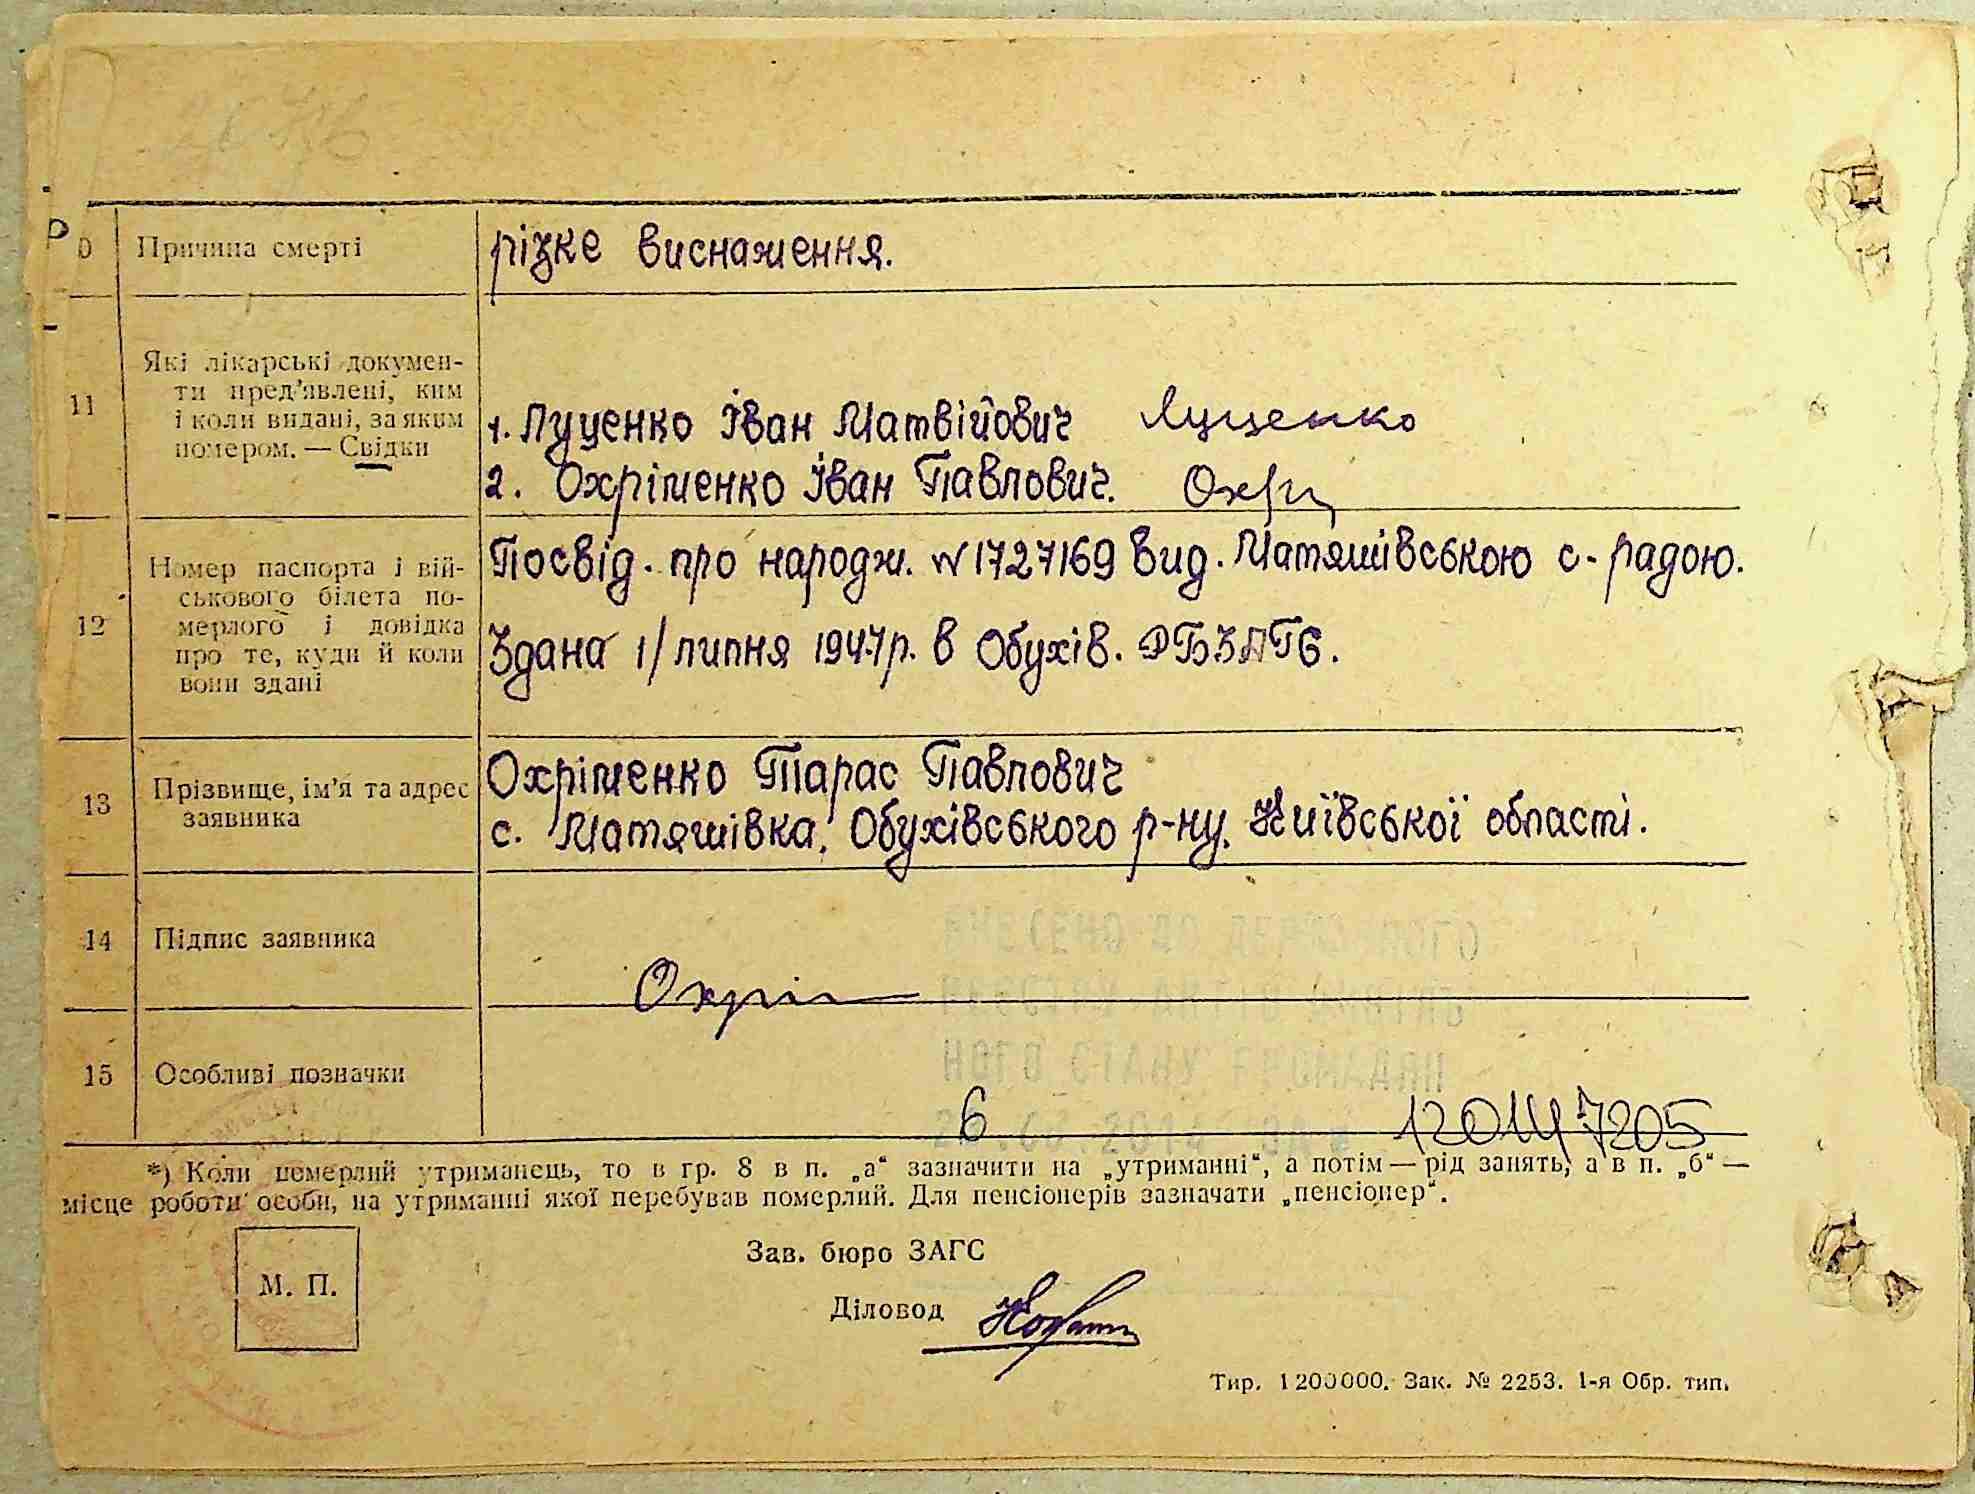 10 Причина смерті
різке виснаження.
11 Які лікарські докумен-
ти пред'явлені, ким
і коли видані, за яким
номером. — Свідки
1. Луценко Іван Матвійович Луценко
2. Охріменко Іван Павлович. Охрі
12 Номер паспорта і вій-
ськового білета по-
мерлого і довідка
про те, куди й коли
вони здані
Посвід. про народж. № 1727169 вид. Матяшівською с-радою.
Здана 1/липня 1947р. в Обухів. РБЗАГС.
13 Прізвище, ім'я та адрес
заявника
Охріменко Тарас Павлович
с. Матяшівка, Обухівського р-ну, Київської області.
14 Підпис заявника
Охрім
15 Особливі позначки
ВНЕСЕНО ДО ДЕРЖАВНОГО
РЕЄСТРУ АКТІВ ЦИВІЛЬ
НОГО СТАНУ ГРОМАДЯН
6
*) Коли померлий утриманець, то в гр. 8 в п. „а“ зазначити на „утриманні“, а потім — рід занять, а в п. „б“ —
місце роботи особи, на утриманні якої перебував померлий. Для пенсіонерів зазначати „пенсіонер“.
Зав. бюро ЗАГС
М. П.
Діловод
Тир. 1200000. Зак. № 2253. 1-я Обр. тип.